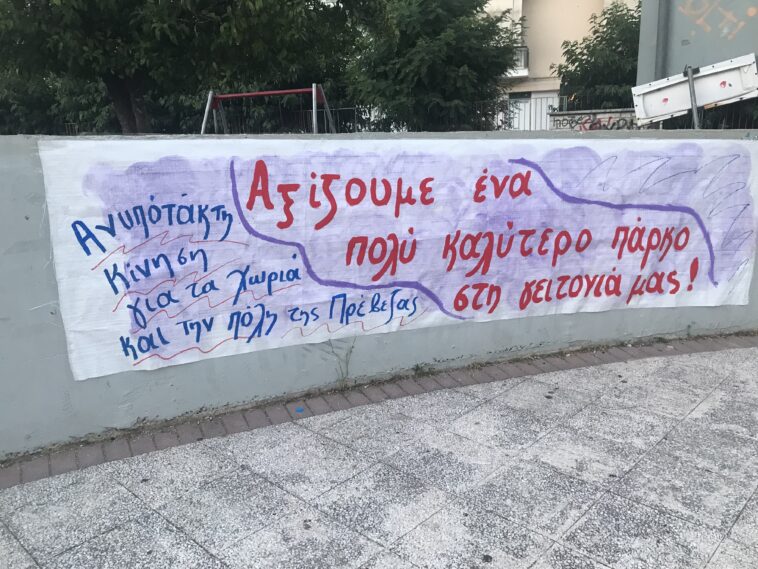 Ανυπότάκτη
Κίνηση
για τα Χωριά
και την πόλη της Πρέβεζας
Αξίζουμε ένα
πολύ καλύτερο πάρκο
στη γειτονιά μας!